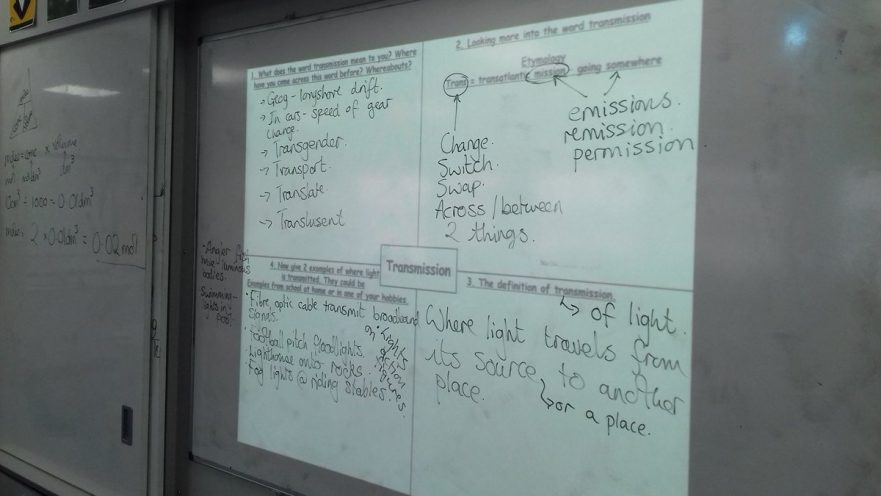 1. What does the word transmission mean to you? Where
have you come across this word before? Whereabouts?
→ Geog - longshore drift.
→ In cars - speed of gear
change.
→ Transgender.
→ Transport.
→ Translate
→ Translusent
2. Looking more into the word transmission
Etymology
Trans = transatlantic mission going somewhere
emissions.
remission.
permission
Change.
Switch.
Swap.
Across / between
2 things.
Transmission
3. The definition of transmission.
↳ of light.
Where light travels from
its source, to another
place.
↳ or a place.
4. Now give 2 examples of where light
is transmitted. They could be
Examples from school at home or in one of your hobbies.
• Fibre optic cable transmit broadband
signals.
• Football pitch floodlights.
• Lighthouse onto rocks.
• Fog lights @ riding stables.
lights
on
action
figures.
- Angler fish
luminous
bodies.
Swimming -
lights in
pool
1000 = 0.01dm³
2 x 0.01dm³ = 0.02 mol